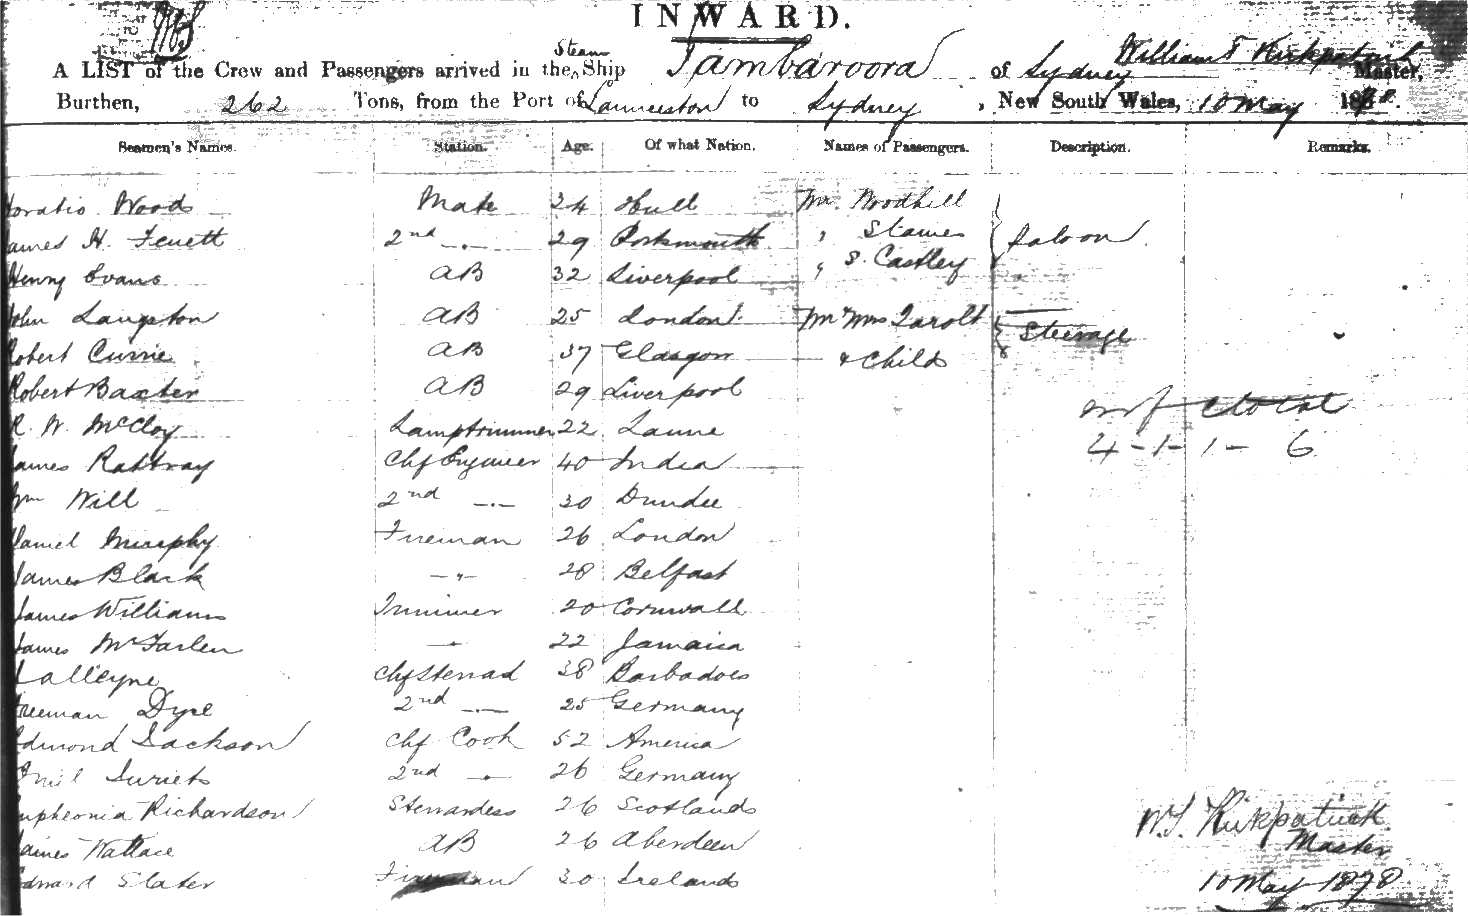 INWARD.
A LIST of the Crew and Passengers arrived in the Steam Ship Tambaroora of Sydney William T Kirkpatrick Master,
Burthen, 262 Tons, from the Port of Launceston to Sydney, New South Wales, 10 May 1878.
Seamen's Names. Station. Age. Of what Nation. Names of Passengers. Description. Remarks.
Horatio Wood Mate 34 Hull Mr. Woodhill
James H. 2nd -"- 29 Portsmouth " Stames Saloon
Henry Evans AB 32 Liverpool " S. Castley
John Langston AB 25 London Mr Mrs Tarolt Steerage
Robert Currie AB 37 Glasgow & Child
Robert Baxter AB 29 Liverpool
m f c total
R. W. McCloy Lamptrimmer 22 Larne
4 - 1 - 1 - 6
James Rattray Chf Engineer 40 India
Wm Will 2nd -"- 30 Dundee
Daniel Murphy Fireman 26 London
James Black -"- 28 Belfast
James Williams Trimmer 20 Cornwall
James McFarlen -"- 22 Jamaica
Lalleyne Chf Steward 38 Barbadoes
Freeman Dyre 2nd -"- 25 Germany
Edmond Jackson Chf Cook 52 America
Emil 2nd -"- 26 Germany
Eupheonia Richardson Stewardess 26 Scotland
James Wallace AB 26 Aberdeen
Edward Slater Fireman 30 Ireland
W T Kirkpatrick
Master
10 May 1878.